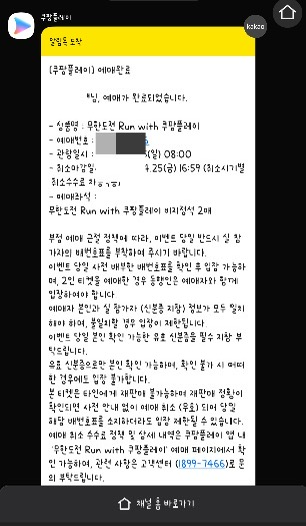 쿠팡플레이
kakao
알림톡 도착
[쿠팡플레이] 예매완료
님, 예매가 완료되었습니다.
- 상품명 : 무한도전 Run with 쿠팡플레이
- 예매번호 :
- 관람일시 : (일) 08:00
- 취소마감일. 4.25(금) 16:59 (취소시기별
취소수수료
- 예매좌석 :
무한도전 Run with 쿠팡플레이 비지정석 2매
부정 예매 근절 정책에 따라, 이벤트 당일 반드시 실 참
가자의 배번호표를 부착하여 주시기 바랍니다.
이벤트 당일 사전 배부한 배번호표를 확인 후 입장 가능하
며, 2인 티켓을 예매한 경우 동행인은 예매자와 함께
입장하여야 합니다
예매자 본인과 실 참가자 (신분증 지참) 정보가 모두 일치
해야 하며, 불일치할 경우 입장이 제한됩니다.
이벤트 당일 본인 확인 가능한 유효 신분증을 필수 지참 부
탁드립니다.
유효 신분증으로만 본인 확인 가능하며, 확인 불가 시 어떠
한 경우에도 입장 불가합니다.
본 티켓은 타인에게 재판매 불가능하며 재판매 정황이
확인되면 사전 안내 없이 예매 취소 (무료) 되며 당일
해당 배번호표를 소지하더라도 입장 제한될 수 있습니다.
예매 취소 수수료 정책 및 상세 내역은 쿠팡플레이 앱 내
'무한도전 Run with 쿠팡플레이' 예매 페이지에서 확
인 가능하여, 관련 사항은 고객센터 (1899-7466)로 문
의 부탁드립니다.
채널 홈 바로가기